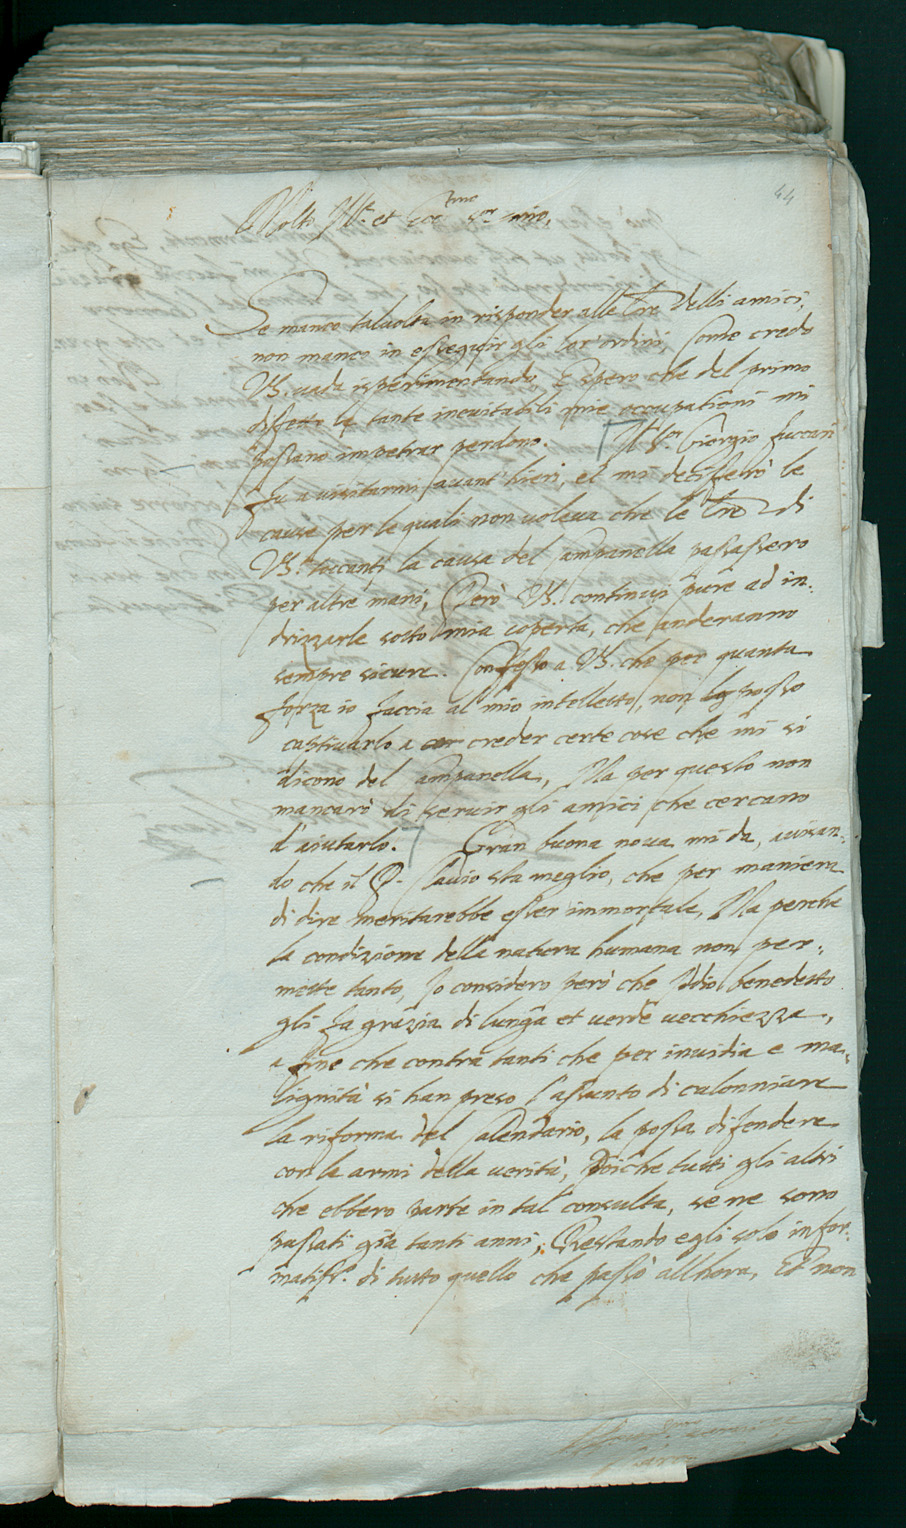 44
Molto Ill.e et Ecc.mo Sor mio.
Se manco talvolta in risponder alle lre delli amici,
non manco in esseguir gli lor'ordini, Come credo
VS. vada isperimentando, E spero che del primo
difetto le tante inevitabili mie occupationi mi
possano impetrar perdono. Il Sor Giorgio fuccari
fu a visitarmi avant'hieri, et mi desiferò le
cause per le quali non voleva che le lre di
VS. toccanti la causa del Campanella passassero
per altre mani, Però VS. continui pure ad in-
drizzarle sotto mia coperta, che anderanno
sempre sicure. Confesso a VS. che per quanta
forza io faccia al mio intelletto, non posso
cattivarlo a creder certe cose che mi si
dicono del Campanella, Ma per questo non
mancarò di servir gli amici che cercano
d'aiutarlo. Gran buona nova mi da, avisan-
do che il P. Clavio sta meglio, che per maniera
di dire meritarebbe esser immortale, Ma perche
la condizione della natura humana non per-
mette tanto, Io considero però che Iddio benedetto
gli fa grazia di lunga et verde vecchiezza,
a fine che contra tanti che per invidia e ma-
lignità si han preso l'assunto di calonniare
la riforma del Calendario, la possa difendere
con le armi della verità, Poiche tutti gli altri
che ebbero parte in tal consulta, se ne sono
passati già tanti anni, Restando egli solo infor-
matiss.o di tutto quello che passò allhora, Et non